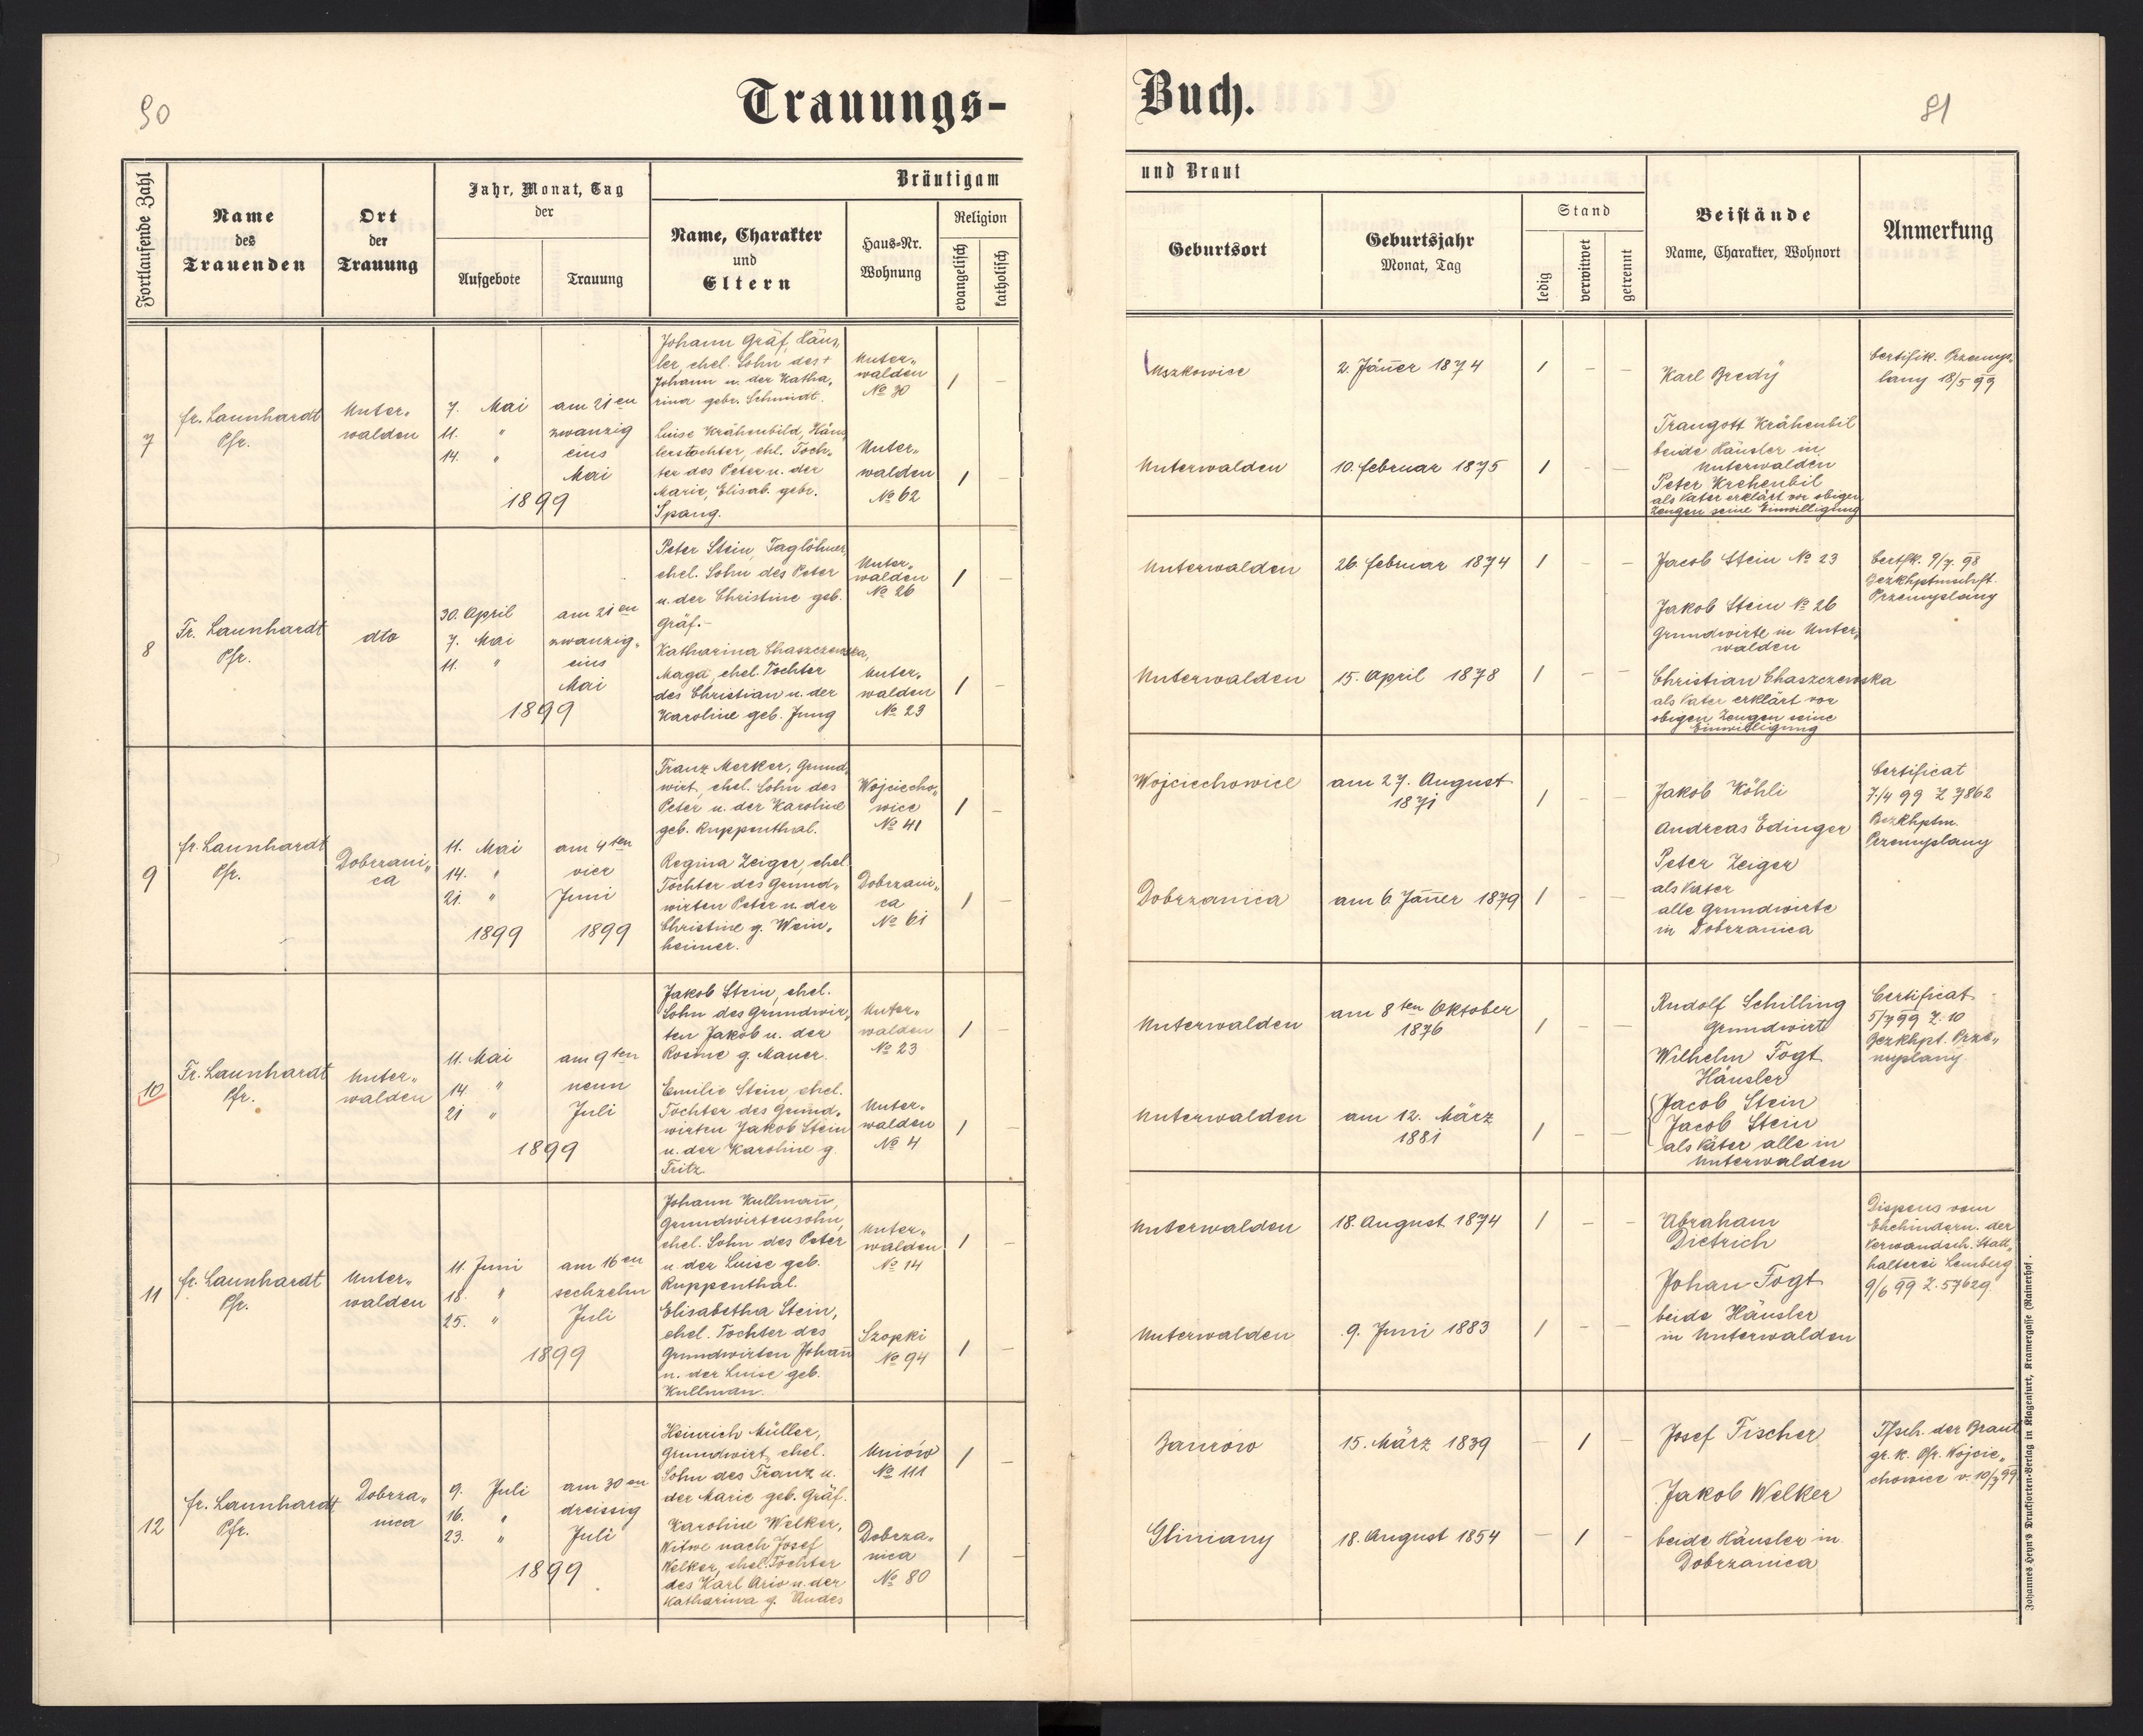 90
Trauungs-
Fortlaufende Zahl
Name
des
Trauenden
Ort
der
Trauung
Jahr, Monat, Tag
der
Aufgebote
Trauung
Bräutigam
Name, Charakter
und
Eltern
Haus-Nr.
Wohnung
Religion
evangelisch
katholisch
7
fr. Launhardt
Pfr.
Unter„
walden
7. Mai
11. "
14. "
am 21en
zwanzig
eins
Mai
1899
Johann Gräf, Häus„
ler, ehel. Sohn des +
Johann u. der Katha„
rina gebr. Schmidt.
Unter„
walden
No 30
/ –
Luise Krähenbild, Häus
lerstochter, ehl. Toch„
ter des Peter u. der
Marie, Elisab. gebr.
Spang.
Unter„
walden
No 62
/ –
8
Fr. Launhardt
Pfr.
dto
30. April
7. Mai
11. "
am 21en
zwanzig„
eins
Mai
1899
Peter Stein, Taglöhner,
ehel. Sohn des Peter
u. der Christine geb.
Gräf.-
Unter„
walden
No 26
/ –
Katharina Chaszczewska,
Magd, ehel. Tochter
des Christian u. der
Karoline geb. Jung
Unter„
walden
No 23
/ –
9
fr. Launhardt
Pfr.
Dobrzani„
ca
11. Mai
14. "
21. "
1899
am 4ten
vier
Juni
1899
Franz Merker, Grund„
wirt, ehel. Sohn des
Peter u. der Karoline
geb. Ruppenthal.
Wojciecho„
wice
No 41
/ –
Regina Zeiger, ehel.
Tochter des Grund„
wirten Peter u. der
Christine g. Wein„
heimer.
Dobrzani„
ca
No 61
/ –
10
Fr. Launhardt
Pfr.
Unter„
walden
11. Mai
14. "
21 "
am 9ten
neun
Juli
1899
Jakob Stein, ehel.
Sohn des Grundwir„
ten Jakob u. der
Rosine g. Mauer.
Unter„
walden
No 23
/ –
Emilie Stein, ehel.
Tochter des Grund„
wirten Jakob Stein
u. der Karoline g.
Fritz.
Unter„
walden
No 4
/ –
11
fr. Launhardt
Pfr.
Unter„
walden
11. Juni
18. "
25. "
am 16en
sechzehn
Juli
1899
Johann Kullmañ,
Grundwirtensohn,
ehel. Sohn des Peter
u. der Luise geb.
Ruppenthal.
Unter„
walden
No 14
/ –
Elisabetha Stein,
ehel. Tochter des
Grundwirten Johañ
u. der Luise geb.
Kullman.
Szopki
No 94
/ –
12
fr. Launhardt
Pfr.
Dobrza„
nica
9. Juli
16. "
23. "
am 30en
dreissig
Juli
1899
Heinrich Müller,
Grundwirt, ehel.
Sohn des Franz u.
der Marie geb. Gräf.
Uniów
No 111
/ –
Karoline Welker,
Witwe nach Josef
Welker, ehel. Tochter
des Karl Ario u. der
Katharina g. Andes
Dobrza„
nica
No 80
/ –
Buch.
81
und Braut
Geburtsort
Geburtsjahr
Monat, Tag
Stand
ledig
verwitwet
getrennt
Beistände
Name, Charakter, Wohnort
Anmerkung
Uszkowice
2. Jäñer 1874
/ – –
Karl Bredÿ
Certifik. Przemys„
lany 18/5 99
Unterwalden
10. februar 1875
/ – –
Traugott Krähenbil
beide Häusler in
Unterwalden
Peter Krehenbil
als Vater erklärt vor obigen
Zeugen seine Einwilligung
Unterwalden
26. februar 1874
/ – –
Jacob Stein No 23
Certfk. 9/7. 98
Bezkhptmschft.
Przemyslany
Jakob Stein No 26
Grundwirte in Unter„
walden
Unterwalden
15. April 1878
/ – –
Christian Chaszczewska
als Vater erklärt vor
obigen Zeugen seine
Einwilligung
Wojciechowice
am 27. August
1871
/ – –
Jakob Köhli
Andreas Edinger
Certificat
7/4 99 Z 7862
Bezkhptm.
Przemyslany
Dobrzanica
am 6 Jäñer 1879
/ – –
Peter Zeiger
als Vater
alle Grundwirte
in Dobrzanica
Unterwalden
am 8ten Oktober
1876
/ – –
Rudolf Schilling
Grundwirt
Wilhelm Fogt
Häusler
Certificat
5/7 99 Z. 10
Bezkhpt. Prze„
myslany.
Unterwalden
am 12. März
1881
/ – –
Jacob Stein
Jacob Stein
als Väter alle in
Unterwalden
Unterwalden
18. August 1874
/ – –
Abraham
Dietrich
Dispens vom
Ehehindern. der
Verwandsch. Statt„
halterei Lemberg
9/6 99 Z. 57629
Unterwalden
9. Juni 1883
/ – –
Johan Fogt
beide Häusler
in Unterwalden
Zaurów
15. März 1839
– / –
Josef Fischer
Tfsch. der Braut
gr. k. Pfr. Wojcie„
chowice v. 10/7 99
Gliniany
18. August 1854
– / –
Jakob Welker
beide Häusler in
Dobrzanica
Johannes Heyn's Drucksorten-Verlag in Klagenfurt, Kramergasse (Rainerhof.